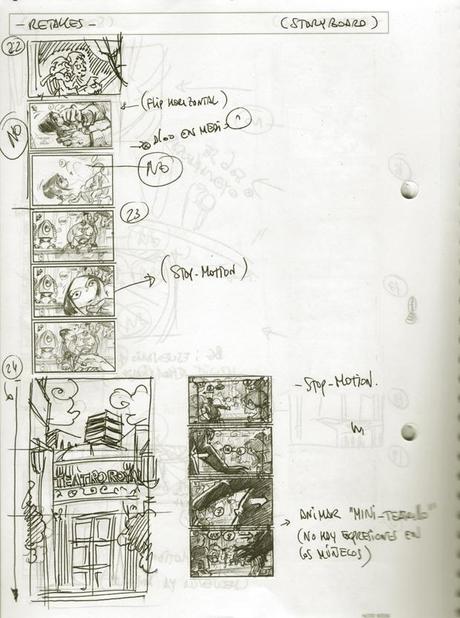 - RETALES - (STORYBOARD)
22
(FLIP HORIZONTAL)
NO
ALGO EN MEDI-
NO
23
(STOP-MOTION)
24
- STOP-MOTION.
TEATRO ROYA
ANIMAR "MINI-
(NO HAY EXPRESIONES EN
LOS MUÑECOS)